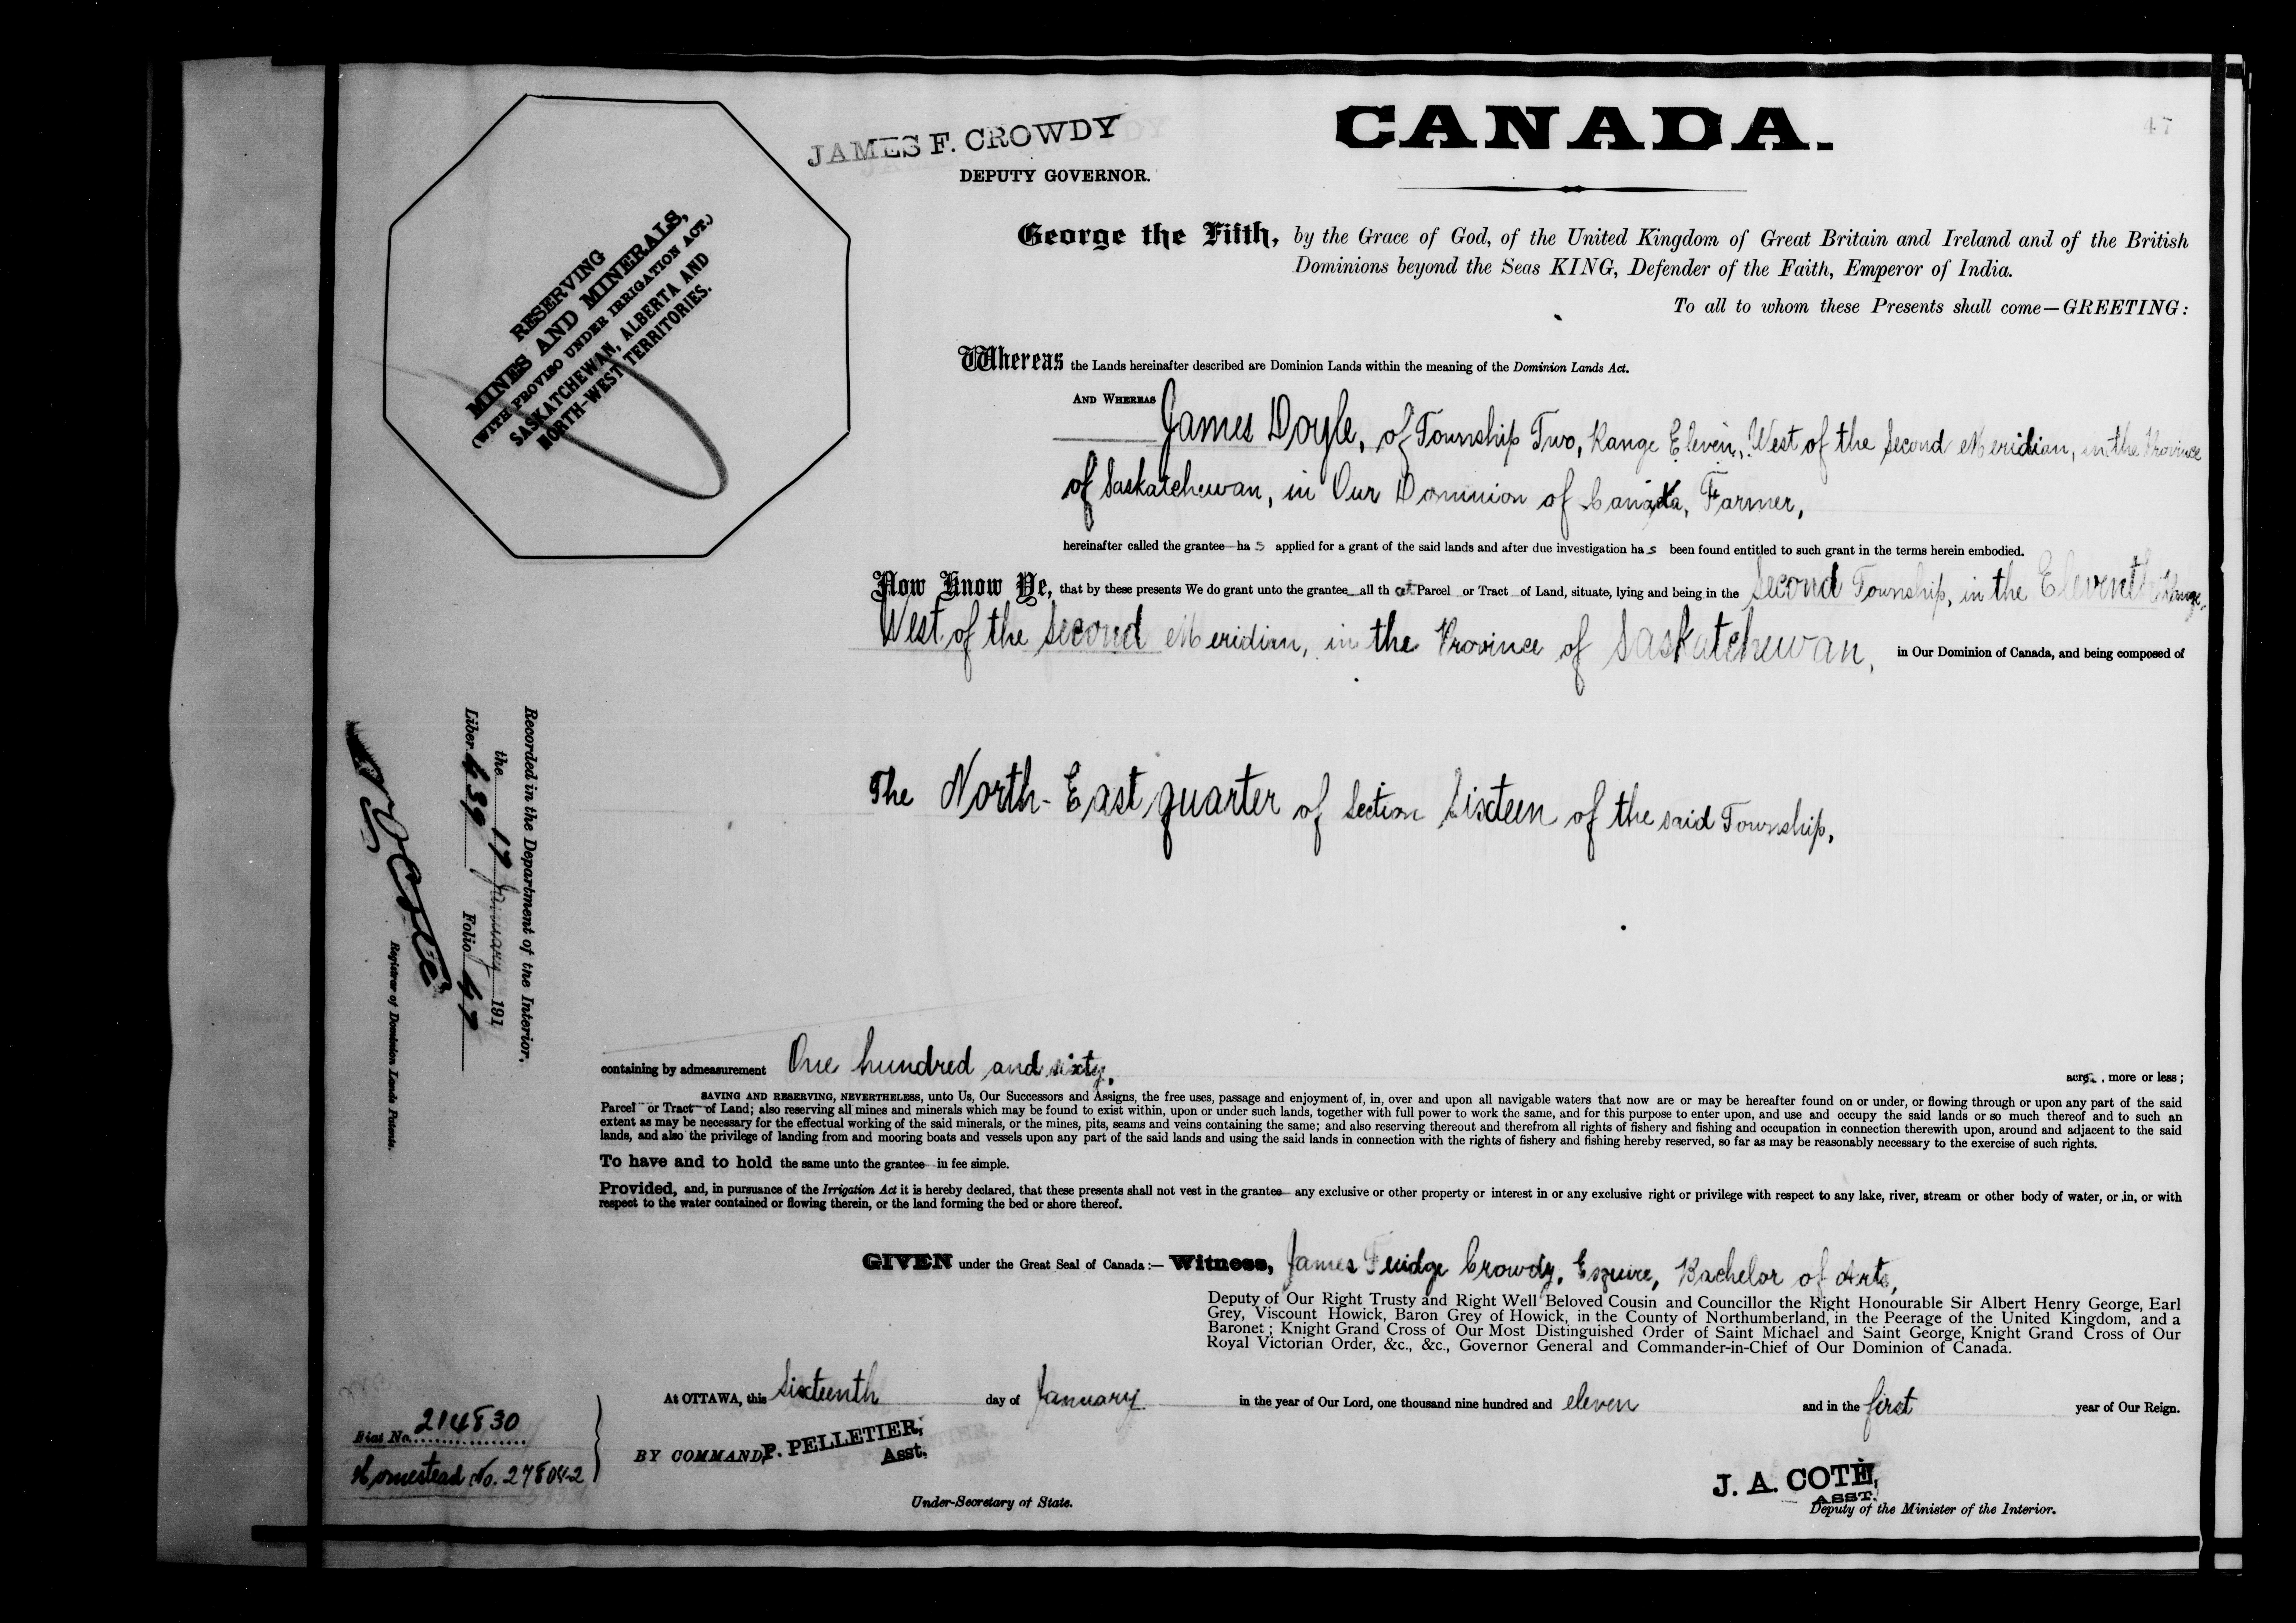 47
JAMES F. CROWDY
DEPUTY GOVERNOR.
CANADA.
RESERVING
MINES AND MINERALS,
(WITH PROVISO UNDER IRRIGATION ACT.)
SASKATCHEWAN, ALBERTA AND
NORTH-WEST TERRITORIES.
George the Fifth, by the Grace of God, of the United Kingdom of Great Britain and Ireland and of the British
Dominions beyond the Seas KING, Defender of the Faith, Emperor of India.
To all to whom these Presents shall come—GREETING:
Whereas the Lands hereinafter described are Dominion Lands within the meaning of the Dominion Lands Act.
AND WHEREAS James Doyle, of Township Two, Range Eleven, West of the Second Meridian, in the Province
of Saskatchewan, in Our Dominion of Canada, Farmer,
hereinafter called the grantee has applied for a grant of the said lands and after due investigation has been found entitled to such grant in the terms herein embodied.
Now Know Ye, that by these presents We do grant unto the grantee all that Parcel or Tract of Land, situate, lying and being in the Second Township, in the Eleventh Range,
West of the Second Meridian, in the Province of Saskatchewan, in Our Dominion of Canada, and being composed of
The North-East quarter of Section Sixteen of the said Township,
Recorded in the Department of the Interior,
the 17 January 191
Liber 439 Folio 47
Registrar of Dominion Lands Patents.
containing by admeasurement One hundred and sixty, acres, more or less;
SAVING AND RESERVING, NEVERTHELESS, unto Us, Our Successors and Assigns, the free uses, passage and enjoyment of, in, over and upon all navigable waters that now are or may be hereafter found on or under, or flowing through or upon any part of the said
Parcel or Tract of Land; also reserving all mines and minerals which may be found to exist within, upon or under such lands, together with full power to work the same, and for this purpose to enter upon, and use and occupy the said lands or so much thereof and to such an
extent as may be necessary for the effectual working of the said minerals, or the mines, pits, seams and veins containing the same; and also reserving thereout and therefrom all rights of fishery and fishing and occupation in connection therewith upon, around and adjacent to the said
lands, and also the privilege of landing from and mooring boats and vessels upon any part of the said lands and using the said lands in connection with the rights of fishery and fishing hereby reserved, so far as may be reasonably necessary to the exercise of such rights.
To have and to hold the same unto the grantee in fee simple.
Provided, and, in pursuance of the Irrigation Act it is hereby declared, that these presents shall not vest in the grantee any exclusive or other property or interest in or any exclusive right or privilege with respect to any lake, river, stream or other body of water, or in, or with
respect to the water contained or flowing therein, or the land forming the bed or shore thereof.
GIVEN under the Great Seal of Canada:— Witness, James Fuidge Crowdy, Esquire, Bachelor of Arts,
Deputy of Our Right Trusty and Right Well Beloved Cousin and Councillor the Right Honourable Sir Albert Henry George, Earl
Grey, Viscount Howick, Baron Grey of Howick, in the County of Northumberland, in the Peerage of the United Kingdom, and a
Baronet; Knight Grand Cross of Our Most Distinguished Order of Saint Michael and Saint George, Knight Grand Cross of Our
Royal Victorian Order, &c., &c., Governor General and Commander-in-Chief of Our Dominion of Canada.
At OTTAWA, this Sixteenth day of January in the year of Our Lord, one thousand nine hundred and eleven and in the first year of Our Reign.
BY COMMAND, P. PELLETIER,
Asst.
Under-Secretary of State.
J. A. COTÉ,
ASST.
Deputy of the Minister of the Interior.
No. 214830
Homestead No. 278042